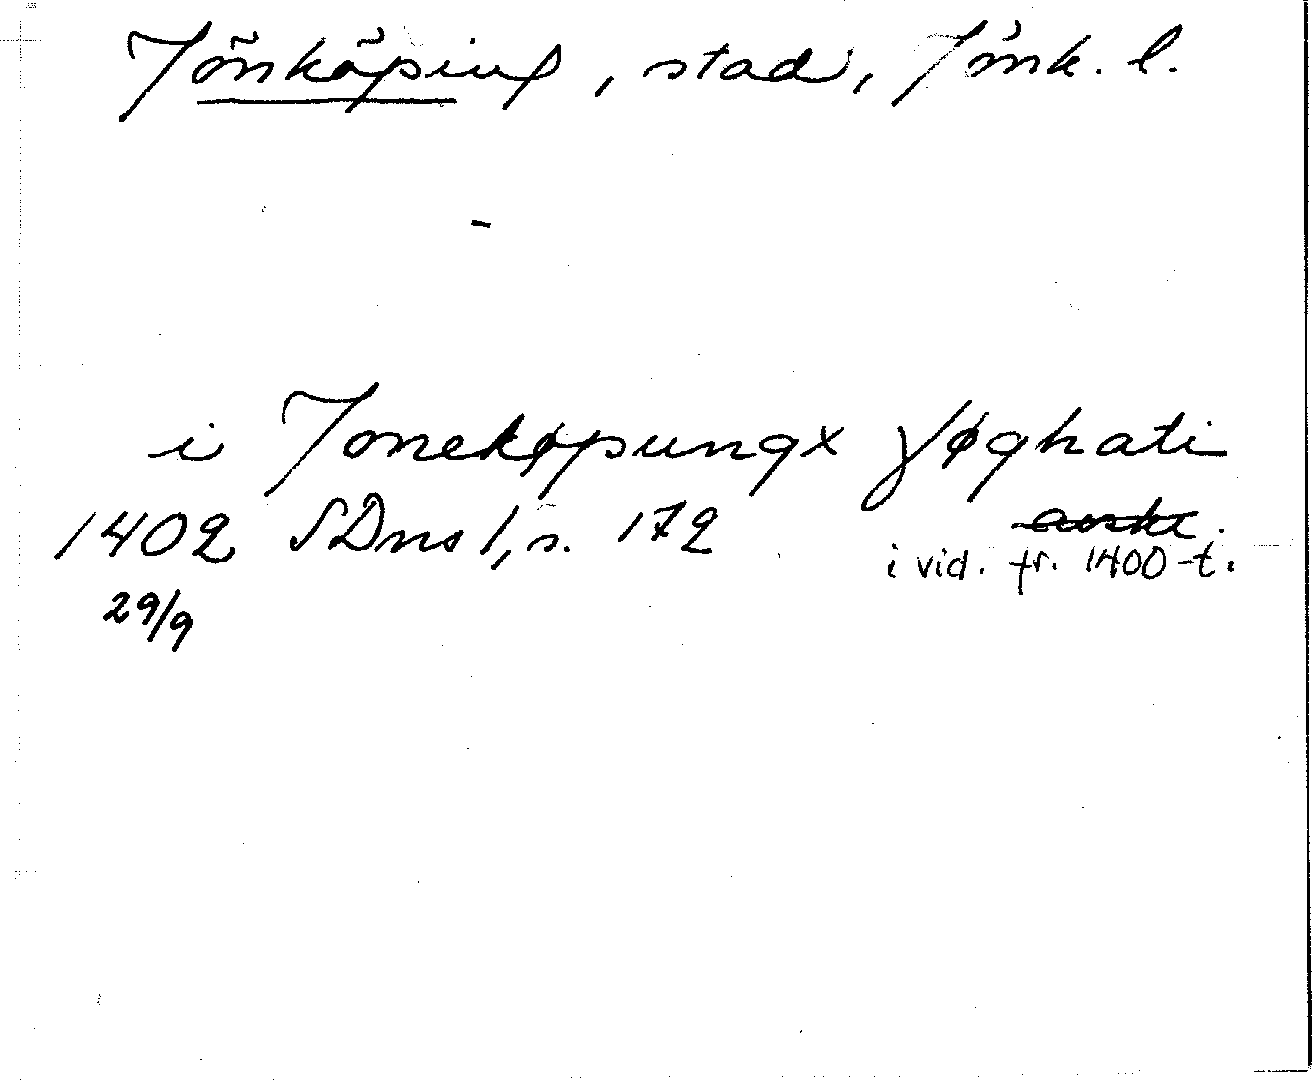 Jönköping, stad, Jönk. l.
i Jonekøpungx føghati
1402 SDns 1, s. 172
i vid. fr. 1400-t.
29/9